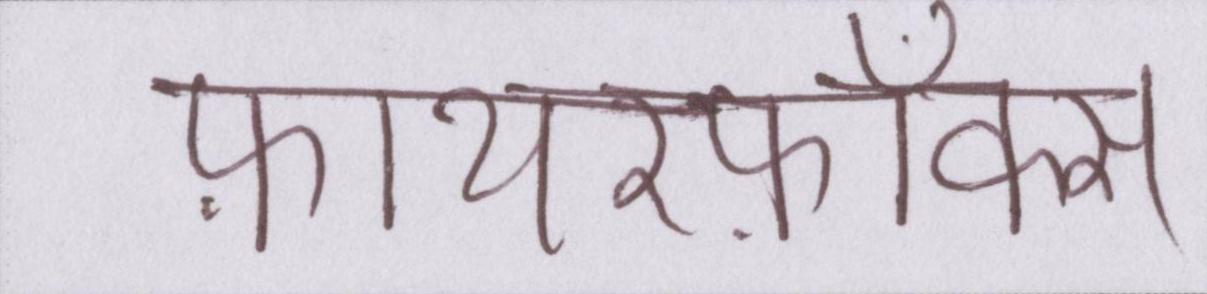 फ़ायरफ़ॉँक्स